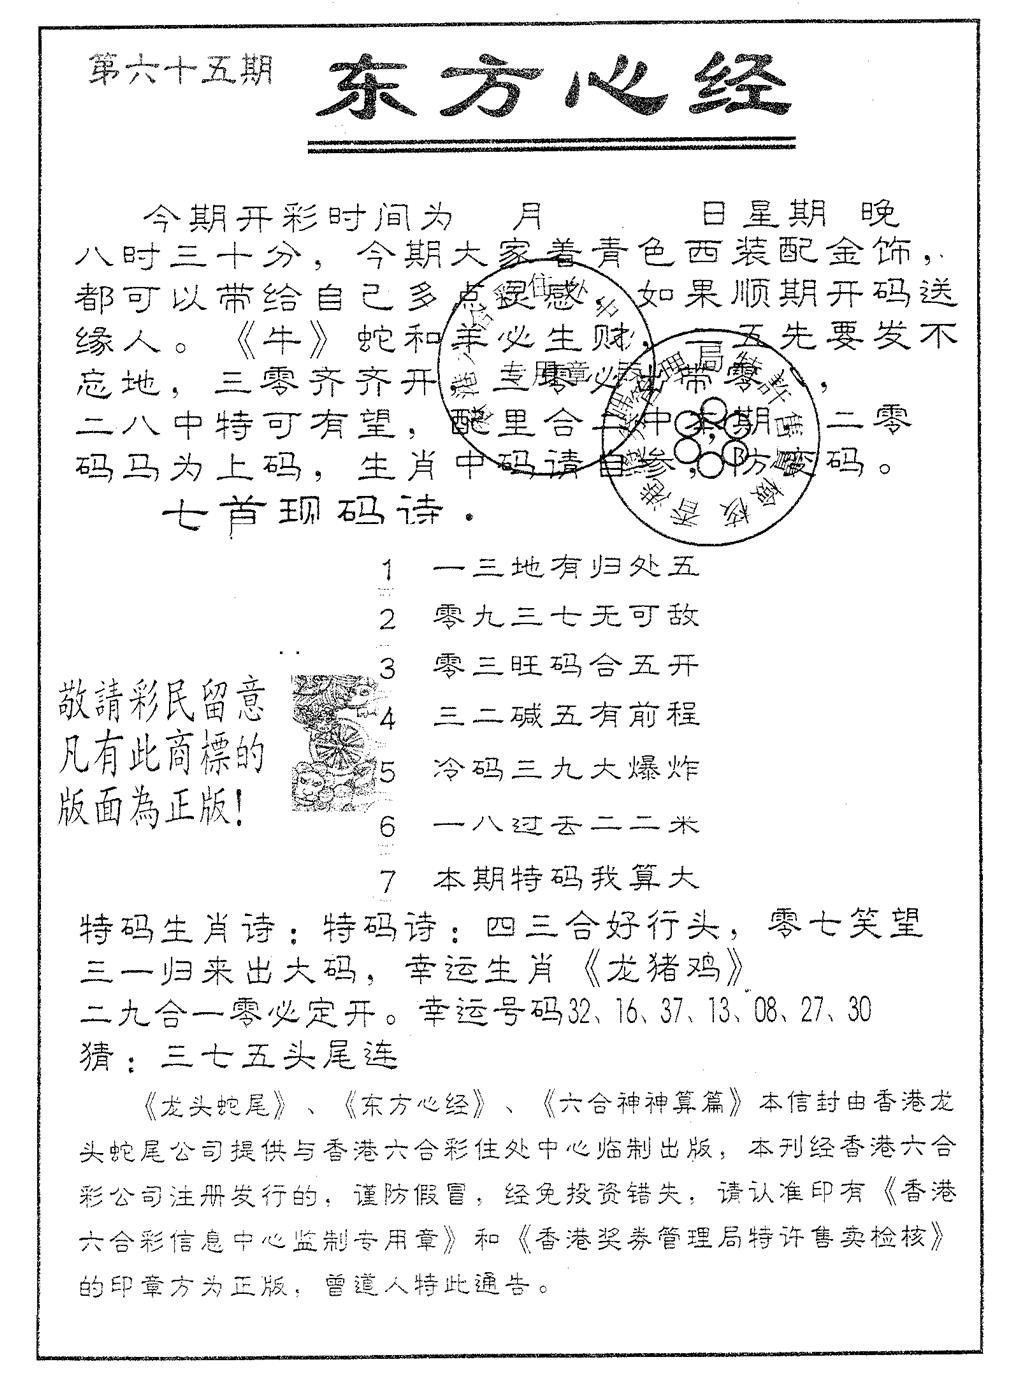 第六十五期
东方心经
今期开彩时间为 月 日星期 晚
八时三十分，今期大家着青色西装配金饰，
都可以带给自己多点灵感，如果顺期开码送
缘人。《牛》蛇和羊必生财，一五先要发不
忘地，三零齐齐开，二零必出带零
二八中特可有望，配里合二中本期 二零
码马为上码，生肖中码请自参，防变码。
七首现码诗.
1 一三地有归处五
2 零九三七无可敌
3 零三旺码合五开
4 三二碱五有前程
5 冷码三九大爆炸
6 一八过去二二米
7 本期特码我算大
敬請彩民留意
凡有此商標的
版面為正版！
特码生肖诗：特码诗：四三合好行头，零七笑望
三一归来出大码，幸运生肖《龙猪鸡》
二九合一零必定开。幸运号码32、16、37、13、08、27、30
猜：三七五头尾连
《龙头蛇尾》、《东方心经》、《六合神神算篇》本信封由香港龙
头蛇尾公司提供与香港六合彩住处中心临制出版，本刊经香港六合
彩公司注册发行的，谨防假冒，经免投资错失，请认准印有《香港
六合彩信息中心监制专用章》和《香港奖券管理局特许售卖检核》
的印章方为正版，曾道人特此通告。